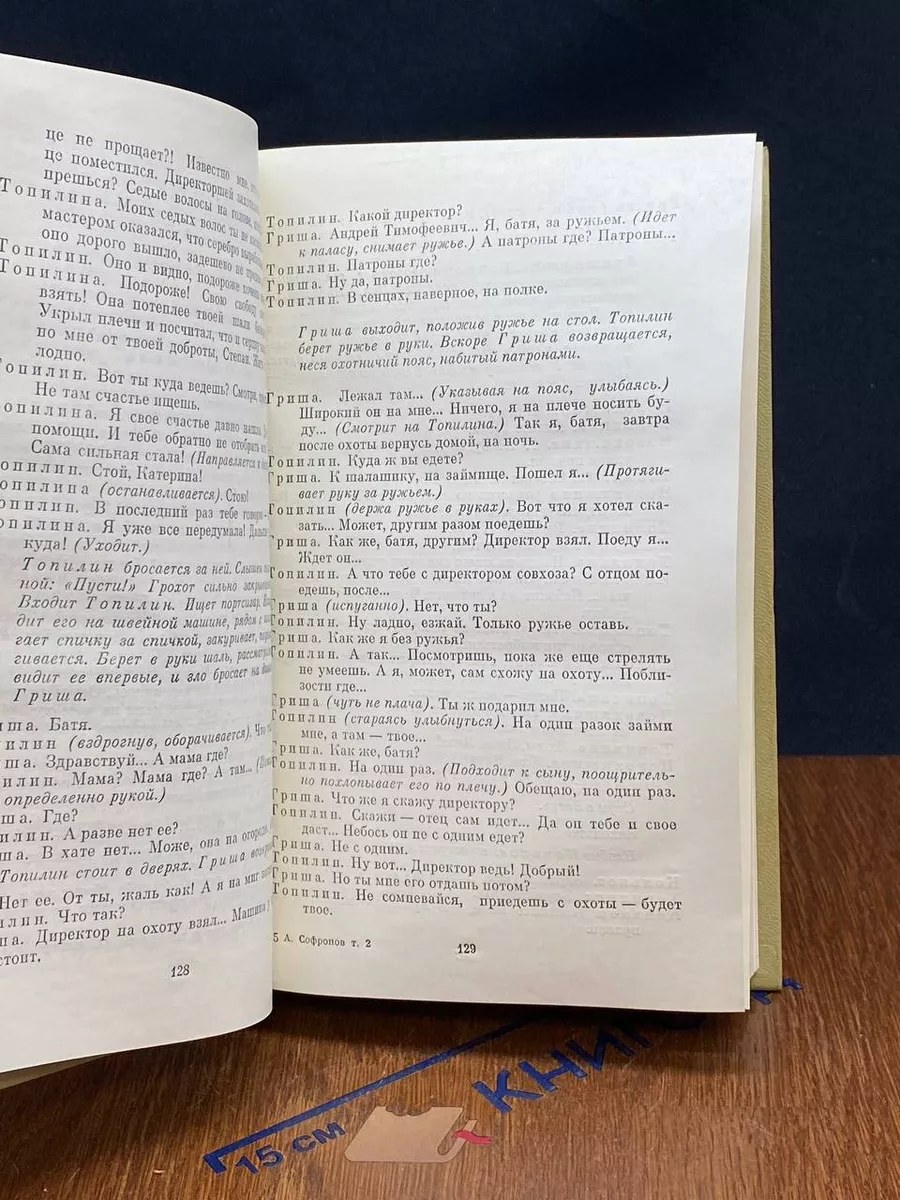 це не прощает?! Известно мне,
це поместился. Директоршей
прешься? Седые волосы на голове,
Топилина. Моих седых волос ты не
мастером оказался, что серебро
оно дорого вышло, задешево не
Топилин. Оно и видно, подороже
Топилина. Подороже! Свою свободу
взять! Она потеплее твоей шали
Укрыл плечи и посчитал, что и сердцу
по мне от твоей доброты, Степан.
лодно.
Топилин. Вот ты куда ведешь? Смотри,
Не там счастье ищешь.
опилина. Я свое счастье давно нашла,
помощи. И тебе обратно не отобрать
Сама сильная стала! (Направляется к
опилин. Стой, Катерина!
опилина (останавливается). Стою!
опилин. В последний раз тебе говорю
опилина. Я уже все передумала!
куда! (Уходит.)
Топилин бросается за ней. Слышен
ной: «Пусти!» Грохот сильно
Входит Топилин. Ищет портсигар.
дит его на швейной машине, рядом с
гает спичку за спичкой, закуривает,
гивается. Берет в руки шаль,
видит ее впервые, и зло бросает на
Гриша.
иша. Батя.
пилин (вздрогнув, оборачивается). Что
иша. Здравствуй... А мама где?
пилин. Мама? Мама где? А там...
определенно рукой.)
иша. Где?
пилин. А разве нет ее?
иша. В хате нет... Може, она на огороде.
Топилин стоит в дверях. Гриша
Нет ее. От ты, жаль как! А я на миг
илин. Что так?
ша. Директор на охоту взял... Машина
стоит.
128
Топилин. Какой директор?
Гриша. Андрей Тимофеевич... Я, батя, за ружьем. (Идет
к паласу, снимает ружье.) А патроны где? Патроны...
Топилин. Патроны где?
Гриша. Ну да, патроны.
Топилин. В сенцах, наверное, на полке.
Гриша выходит, положив ружье на стол. Топилин
берет ружье в руки. Вскоре Гриша возвращается,
неся охотничий пояс, набитый патронами.
Гриша. Лежал там... (Указывая на пояс, улыбаясь.)
Широкий он на мне... Ничего, я на плече носить бу-
ду... (Смотрит на Топилина.) Так я, батя, завтра
после охоты вернусь домой, на ночь.
Топилин. Куда ж вы едете?
Гриша. К шалашику, на займище. Пошел я... (Протяги-
вает руку за ружьем.)
Топилин (держа ружье в руках). Вот что я хотел ска-
зать... Может, другим разом поедешь?
Гриша. Как же, батя, другим? Директор взял. Поеду я...
Ждет он...
Топилин. А что тебе с директором совхоза? С отцом по-
едешь, после...
Гриша (испуганно). Нет, что ты?
Топилин. Ну ладно, езжай. Только ружье оставь.
Гриша. Как же я без ружья?
Топилин. А так... Посмотришь, пока же еще стрелять
не умеешь. А я, может, сам схожу на охоту... Побли-
зости где...
Гриша (чуть не плача). Ты ж подарил мне.
Топилин (стараясь улыбнуться). На один разок займи
мне, а там — твое...
Гриша. Как же, батя?
Топилин. На один раз. (Подходит к сыну, поощритель-
но похлопывает его по плечу.) Обещаю, на один раз.
Гриша. Что же я скажу директору?
Топилин. Скажи — отец сам идет... Да он тебе и свое
даст... Небось он не с одним едет?
Гриша. Не с одним.
Топилин. Ну вот... Директор ведь! Добрый!
Гриша. Но ты мне его отдашь потом?
Топилин. Не сомневайся, приедешь с охоты — будет
твое.
5 А. Софронов т. 2
129
15 СМ
КНИГО